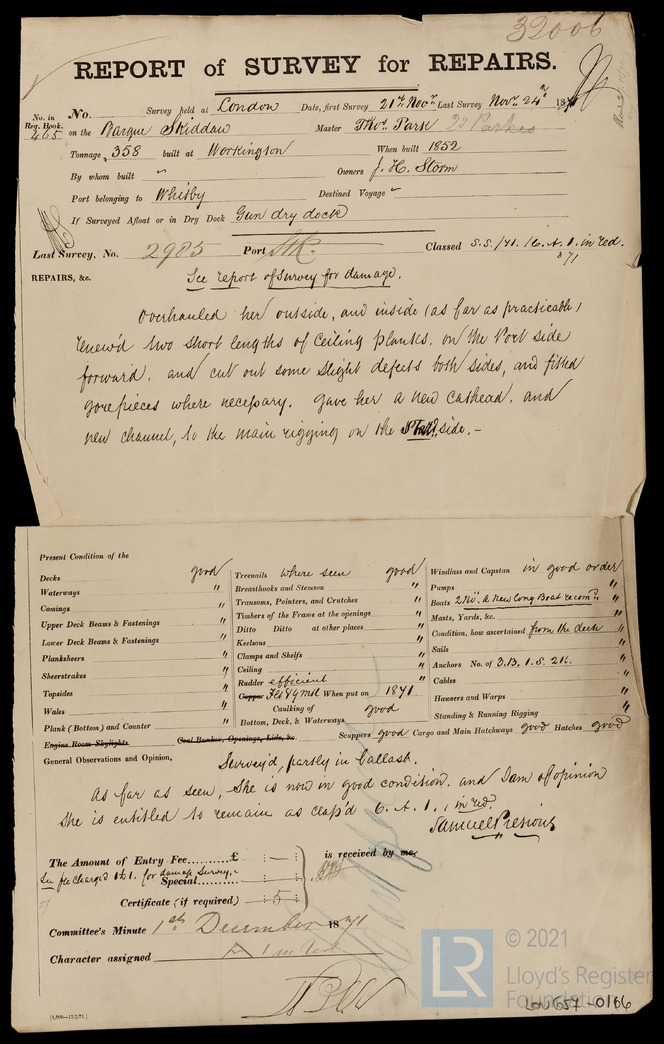 32006
REPORT of SURVEY for REPAIRS.
No. in Reg. Book. 465
No. Survey held at London Date, first Survey 21st Novr Last Survey Novr 24th 1871
on the Barque Skiddaw Master Thos. Park
Tonnage 358 built at Workington When built 1852
By whom built " Owners J. H. Storm
Port belonging to Whitby Destined Voyage
If Surveyed Afloat or in Dry Dock Gun dry dock
Last Survey, No. 2985 Port Classed S.S./71. 6. A. 1. in red.
3/71
REPAIRS, &c. See report of Survey for damage.
Overhauled her outside, and inside (as far as practicable)
renew'd two short lengths of Ceiling planks, on the Port side
forward, and cut out some slight defects both sides, and fitted
gorepieces where necessary. Gave her a new Cathead, and
new channel, to the main rigging on the Starb. side. -
Present Condition of the
Decks good Treenails where seen good Windlass and Capstan in good order
Waterways " Breasthooks and Stemson " Pumps "
Comings " Transoms, Pointers, and Crutches " Boats 2 No. a New Long Boat recomd. "
Upper Deck Beams & Fastenings " Timbers of the Frame at the openings " Masts, Yards, &c. "
Lower Deck Beams & Fastenings " Ditto Ditto at other places " Condition, how ascertained from the deck "
Planksheers " Keelsons " Sails "
Sheerstrakes " Clamps and Shelfs " Anchors No. of 3.B, 1.S. 2K. "
Topsides " Ceiling " Cables "
Wales " Rudder efficient Hawsers and Warps "
Plank (Bottom) and Counter " Copper When put on 1871 Standing & Running Rigging "
Caulking of Bottom, Deck, & Waterways good
Engine Room Skylights Coal Bunker, Openings, Lids, &c. Scuppers good Cargo and Main Hatchways good Hatches good
General Observations and Opinion, Survey'd, partly in ballast.
As far as seen, She is now in good condition, and I am of opinion
She is entitled to remain as class'd 6. A. 1., in red.
Samuel Presious
The Amount of Entry Fee £ : - : is received by me
See fee charged for damage Survey. Special : :
Certificate (if required) : 5 :
Committee's Minute 1st December 1871
Character assigned A 1 in red
© 2021
LR
Lloyd's Register
Foundation
LON657-0166